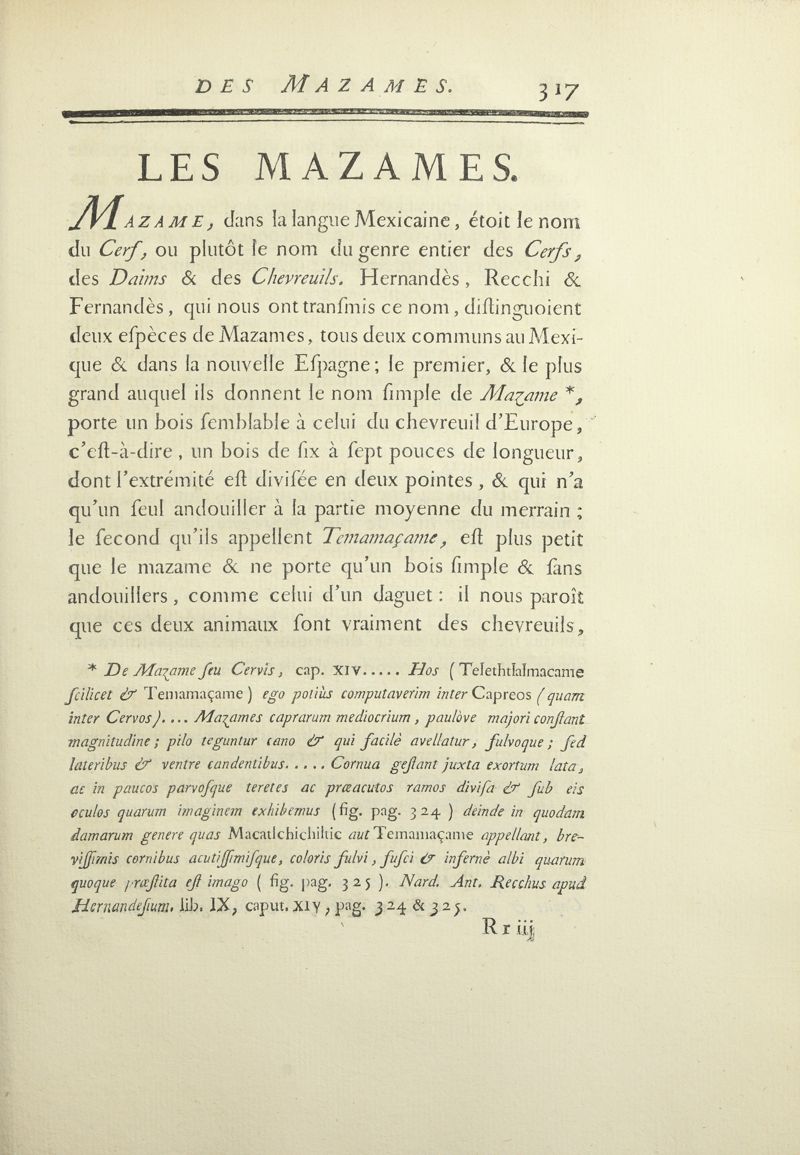 DES MAZAMES. 317
LES MAZAMES.
MAZAME, dans la langue Mexicaine, étoit le nom
du Cerf, ou plutôt le nom du genre entier des Cerfs,
des Daims & des Chevreuils. Hernandès, Recchi &
Fernandès, qui nous ont tranſmis ce nom, diſtinguoient
deux eſpèces de Mazames, tous deux communs au Mexi-
que & dans la nouvelle Eſpagne; le premier, & le plus
grand auquel ils donnent le nom ſimple de Mazame *,
porte un bois ſemblable à celui du chevreuil d'Europe,
c'eſt-à-dire, un bois de ſix à ſept pouces de longueur,
dont l'extrémité eſt diviſée en deux pointes, & qui n'a
qu'un ſeul andouiller à la partie moyenne du merrain;
le ſecond qu'ils appellent Temamaçame, eſt plus petit
que le mazame & ne porte qu'un bois ſimple & ſans
andouillers, comme celui d'un daguet: il nous paroît
que ces deux animaux ſont vraiment des chevreuils,
* De Mazame ſeu Cervis, cap. XIV..... Hos (Telethtlalmacame
ſcilicet & Temamaçame) ego potiùs computaverim inter Capreos (quam
inter Cervos).... Mazames caprarum mediocrium, paulòve majori conſtant
magnitudine; pilo teguntur cano & qui facilè avellatur, fulvoque; ſed
lateribus & ventre candentibus..... Cornua geſtant juxta exortum lata,
ac in paucos parvoſque teretes ac præacutos ramos diviſa & ſub eis
oculos quarum imaginem exhibemus (fig. pag. 324) deinde in quodam
damarum genere quas Macatlchichiltic aut Temamaçame appellant, bre-
viſſimis cornibus acutiſſimiſque, coloris fulvi, fuſci & infernè albi quarum
quoque præſtita eſt imago (fig. pag. 325). Nard. Ant. Recchus apud
Hernandeſium, lib. IX, caput. XIV, pag. 324 & 325.
R r iij